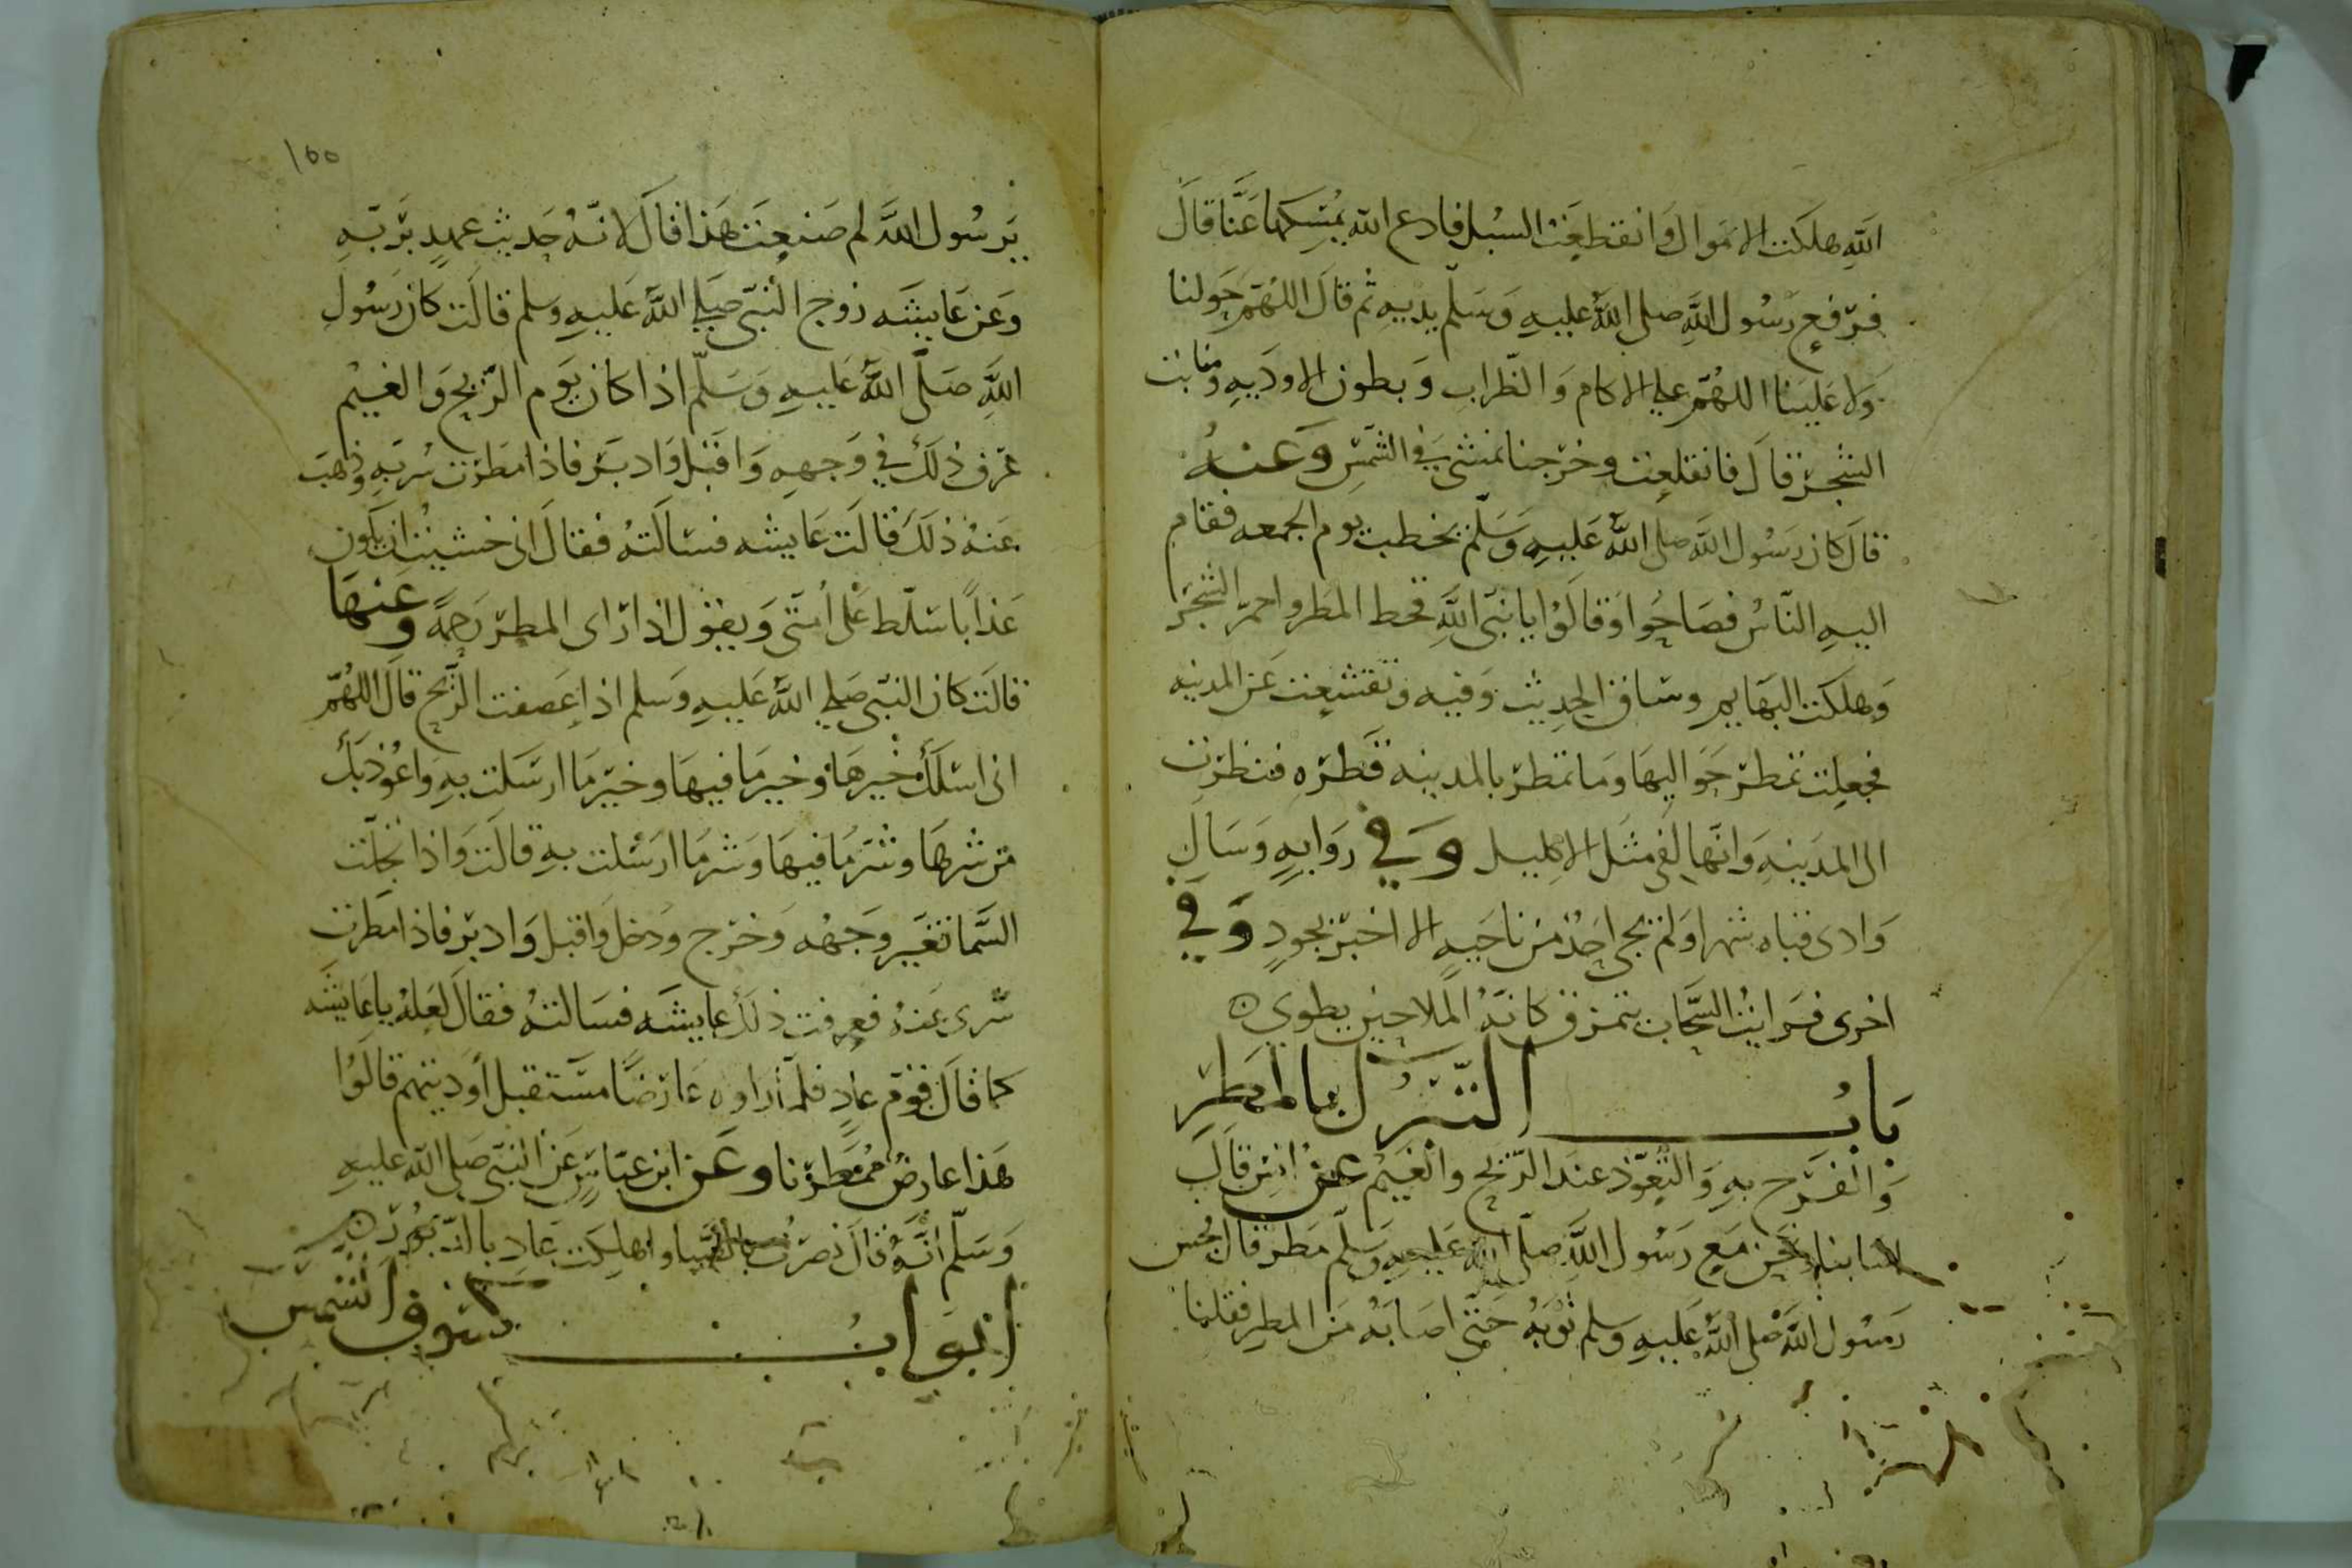 الله هلكت الاموال وانقطعت السبل فادع الله يمسكها عنا قال
فرفع رسول الله صلى الله عليه وسلم يديه ثم قال اللهم حولنا
ولا علينا اللهم على الاكام والظراب وبطون الاوديه ومنابت
الشجر قال فانقلعت وخرجنا نمشي في الشمس وعنه
قال كان رسول الله صلى الله عليه وسلم يخطب يوم الجمعه فقام
اليه الناس فصاحوا وقالوا يا نبي الله قحط المطر واحمر الشجر
وهلكت البهايم وساق الحديث وفيه وتقشعت عن المدينه
فجعلت تمطر حواليها وما تمطر بالمدينه قطره فنظرت
الى المدينه وانها لفي مثل الاكليل وفي روايه وسال
وادي قناه شهرا ولم يجي احد من ناحيه الا اخبر بجود وفي
اخرى فرايت السحاب يتمزق كانه الملا حين يطوي
باب التبرك بالمطر
والفرح به والتعوذ عند الريح والغيم عن انس قال
اصابنا ونحن مع رسول الله صلى الله عليه وسلم مطر قال فحسر
رسول الله صلى الله عليه وسلم ثوبه حتى اصابه من المطر فقلنا
١٥٥
يرسول الله لم صنعت هذا قال لانه حديث عهد بربه
وعن عايشه زوج النبي صلى الله عليه وسلم قالت كان رسول
الله صلى الله عليه وسلم اذا كان يوم الريح والغيم
عرف ذلك في وجهه واقبل وادبر فاذا مطرت سر به وذهب
عنه ذلك قالت عايشه فسالته فقال اني خشيت ان يكون
عذابا سلط على امتي ويقول اذا راى المطر رحمة وعنها
قالت كان النبي صلى الله عليه وسلم اذا عصفت الريح قال اللهم
اني اسلك خيرها وخير ما فيها وخير ما ارسلت به واعوذ بك
من شرها وشر ما فيها وشر ما ارسلت به قالت واذا تخيلت
السما تغير وجهه وخرج ودخل واقبل وادبر فاذا مطرت
سري عنه فعرفت ذلك عايشه فسالته فقال لعله يا عايشه
كما قال قوم عاد فلما راوه عارضا مستقبل أوديتهم قالوا
هذا عارض ممطرنا وعن ابن عباس عن النبي صلى الله عليه
وسلم انه قال نصرت بالصبا واهلكت عاد بالدبور
ابواب كسوف الشمس